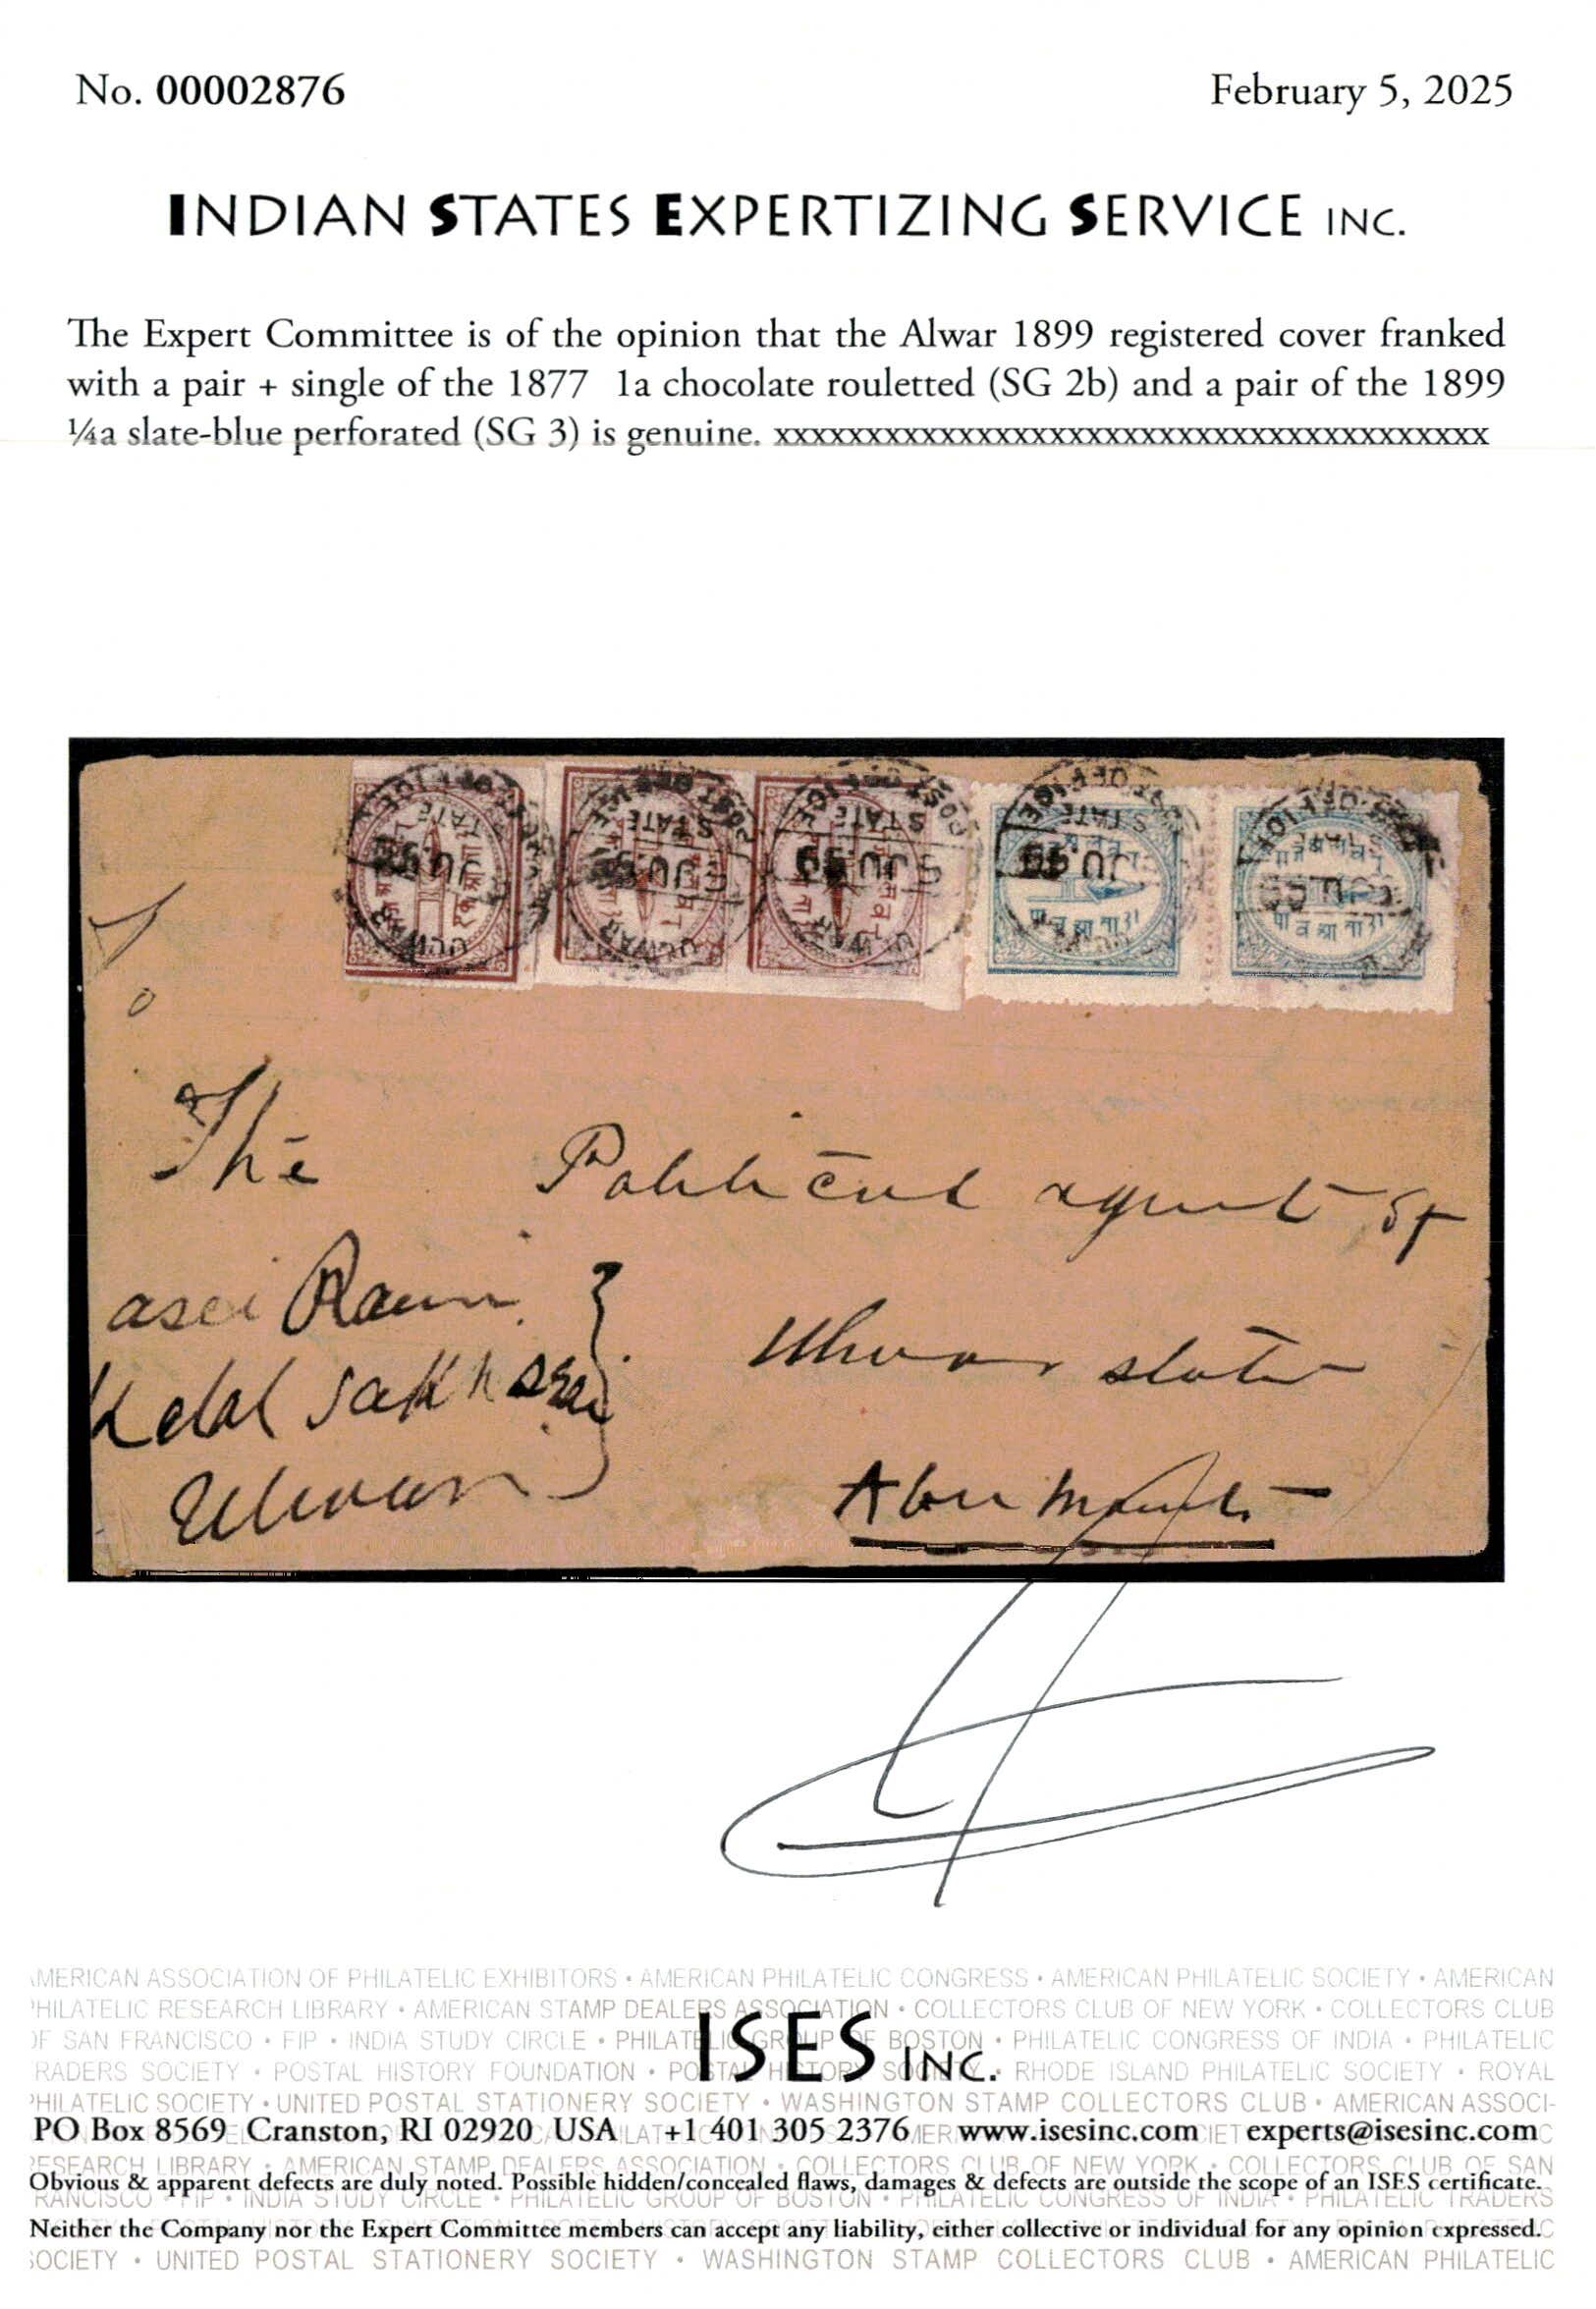 No. 00002876
February 5, 2025
INDIAN STATES EXPERTIZING SERVICE INC.
The Expert Committee is of the opinion that the Alwar 1899 registered cover franked
with a pair + single of the 1877 1a chocolate rouletted (SG 2b) and a pair of the 1899
¼a slate-blue perforated (SG 3) is genuine. xxxxxxxxxxxxxxxxxxxxxxxxxxxxxxxxxxxxxxxxx
POST OFFICE
STATE
ULWAR
5 JU 99
पाव आ ना
पाव आ ना
To
The Political agent of
Ram
Ulwar state
Ulwar
Abu Mount
AMERICAN ASSOCIATION OF PHILATELIC EXHIBITORS • AMERICAN PHILATELIC CONGRESS • AMERICAN PHILATELIC SOCIETY • AMERICAN
PHILATELIC RESEARCH LIBRARY • AMERICAN STAMP DEALERS ASSOCIATION • COLLECTORS CLUB OF NEW YORK • COLLECTORS CLUB
OF SAN FRANCISCO • FIP • INDIA STUDY CIRCLE • PHILATELIC GROUP OF BOSTON • PHILATELIC CONGRESS OF INDIA • PHILATELIC
ISES INC.
TRADERS SOCIETY • POSTAL HISTORY FOUNDATION • POSTAL HISTORY SOCIETY • RHODE ISLAND PHILATELIC SOCIETY • ROYAL
PHILATELIC SOCIETY • UNITED POSTAL STATIONERY SOCIETY • WASHINGTON STAMP COLLECTORS CLUB • AMERICAN ASSOCI-
PO Box 8569 Cranston, RI 02920 USA +1 401 305 2376 www.isesinc.com experts@isesinc.com
RESEARCH LIBRARY • AMERICAN STAMP DEALERS ASSOCIATION • COLLECTORS CLUB OF NEW YORK • COLLECTORS CLUB OF SAN
Obvious & apparent defects are duly noted. Possible hidden/concealed flaws, damages & defects are outside the scope of an ISES certificate.
FRANCISCO • FIP • INDIA STUDY CIRCLE • PHILATELIC GROUP OF BOSTON • PHILATELIC CONGRESS OF INDIA • PHILATELIC TRADERS
Neither the Company nor the Expert Committee members can accept any liability, either collective or individual for any opinion expressed.
SOCIETY • UNITED POSTAL STATIONERY SOCIETY • WASHINGTON STAMP COLLECTORS CLUB • AMERICAN PHILATELIC